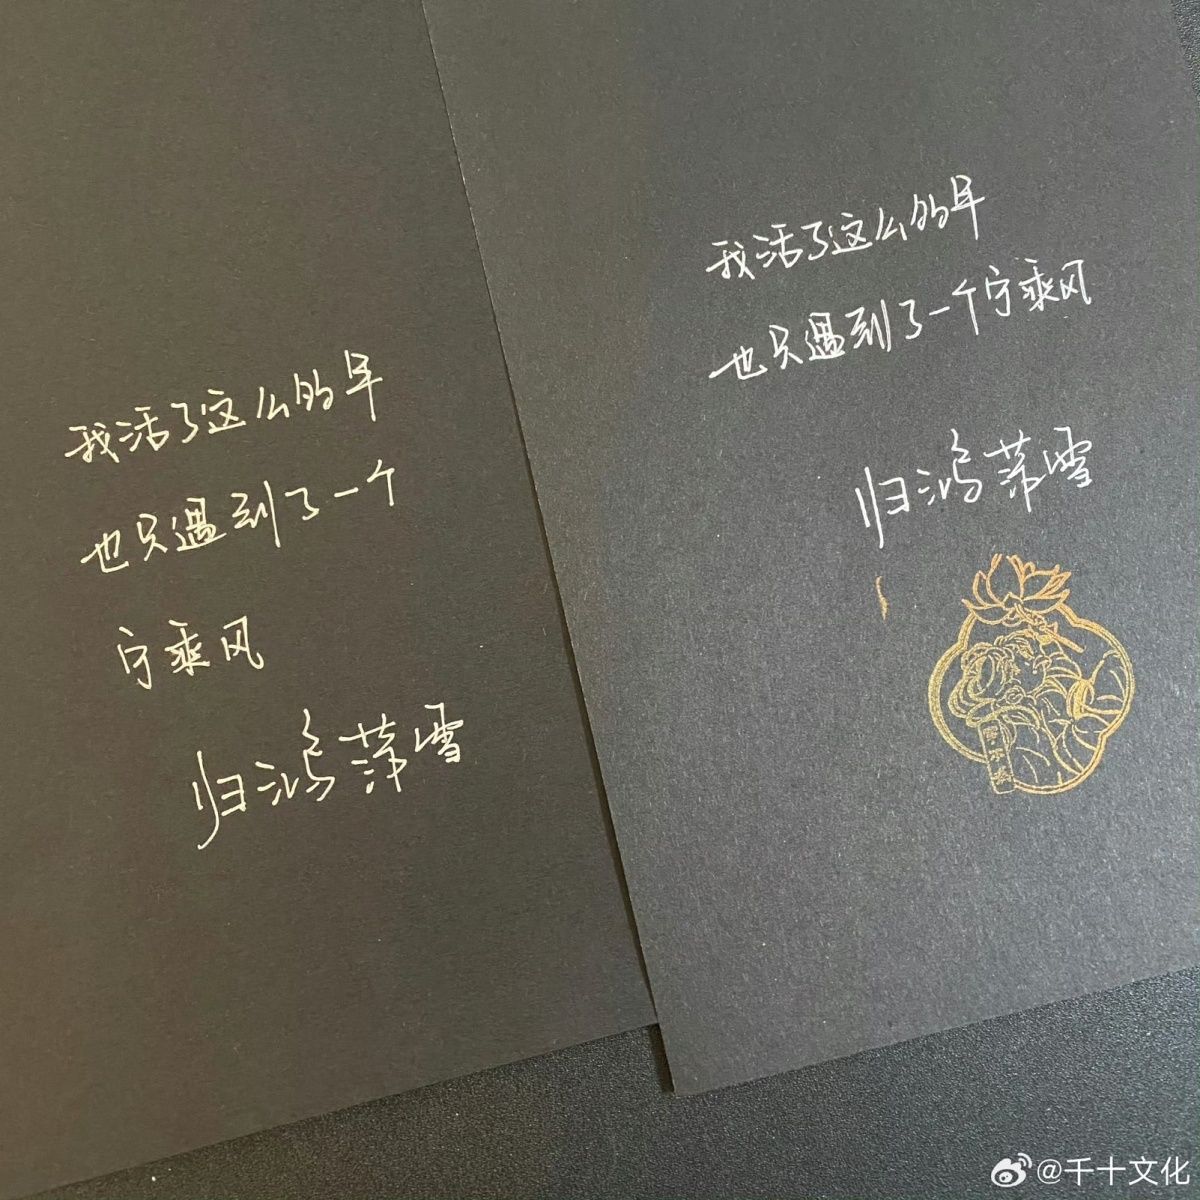 我活了这么多年
也只遇到了一个
宁乘风
归鸿落雪
我活了这么多年
也只遇到了一个宁乘风
归鸿落雪
@千十文化